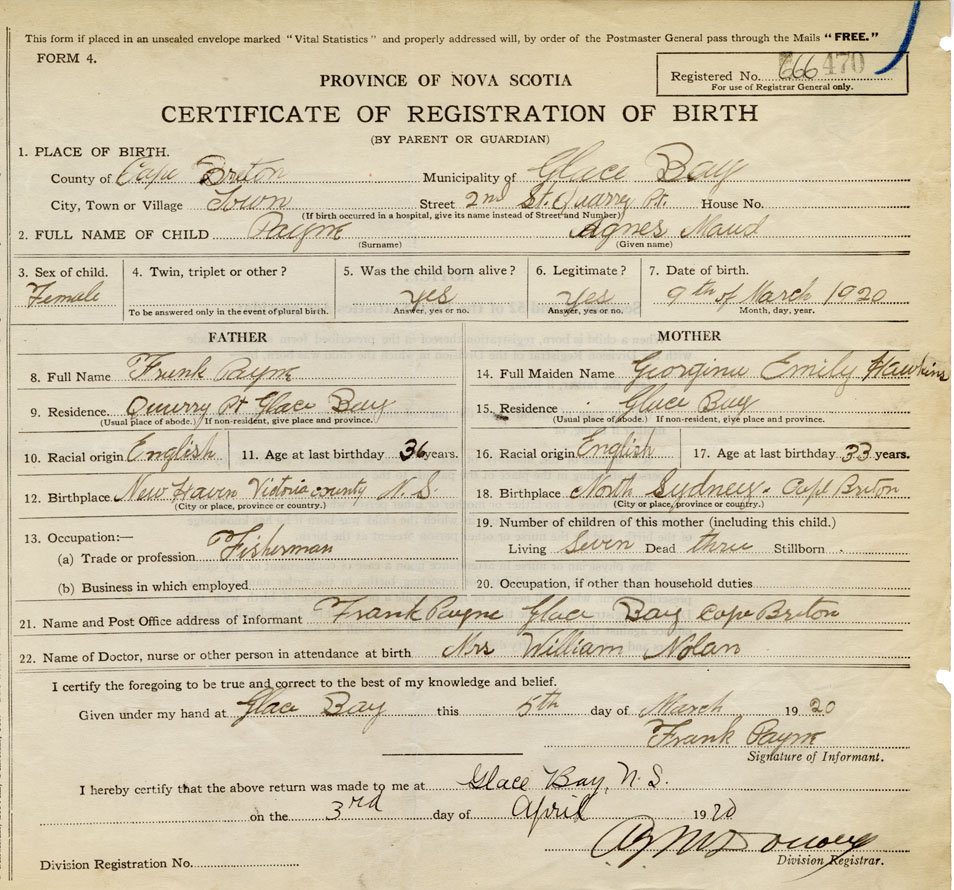 This form if placed in an unsealed envelope marked "Vital Statistics" and properly addressed will, by order of the Postmaster General pass through the Mails "FREE."
FORM 4.
Registered No. 666 470
For use of Registrar General only.
PROVINCE OF NOVA SCOTIA
CERTIFICATE OF REGISTRATION OF BIRTH
(BY PARENT OR GUARDIAN)
1. PLACE OF BIRTH.
County of Cape Breton Municipality of Glace Bay
City, Town or Village Town Street 2nd St. Quarry Pt. House No.
(If birth occurred in a hospital, give its name instead of Street and Number)
2. FULL NAME OF CHILD Payne Agnes Maud
(Surname) (Given name)
3. Sex of child. 4. Twin, triplet or other? 5. Was the child born alive? 6. Legitimate? 7. Date of birth.
Female Yes Yes 9th of March 1920
To be answered only in the event of plural birth. Answer, yes or no. Answer, yes or no. Month, day, year.
FATHER MOTHER
8. Full Name Frank Payne 14. Full Maiden Name Georgina Emily Hawkins
9. Residence. Quarry Pt Glace Bay 15. Residence Glace Bay
(Usual place of abode.) If non-resident, give place and province. (Usual place of abode.) If non-resident, give place and province.
10. Racial origin English 11. Age at last birthday 36 years. 16. Racial origin English 17. Age at last birthday 33 years.
12. Birthplace New Haven Victoria county N.S. 18. Birthplace North Sydney. Cape Breton
(City or place, province or country.) (City or place, province or country.)
13. Occupation:— 19. Number of children of this mother (including this child.)
(a) Trade or profession Fisherman Living Seven Dead three Stillborn
(b) Business in which employed 20. Occupation, if other than household duties
21. Name and Post Office address of Informant Frank Payne Glace Bay Cape Breton
22. Name of Doctor, nurse or other person in attendance at birth Mrs William Nolan
I certify the foregoing to be true and correct to the best of my knowledge and belief.
Given under my hand at Glace Bay this 5th day of March 1920
Frank Payne
Signature of Informant.
I hereby certify that the above return was made to me at Glace Bay, N.S.
on the 3rd day of April 1920
Division Registration No. Division Registrar.